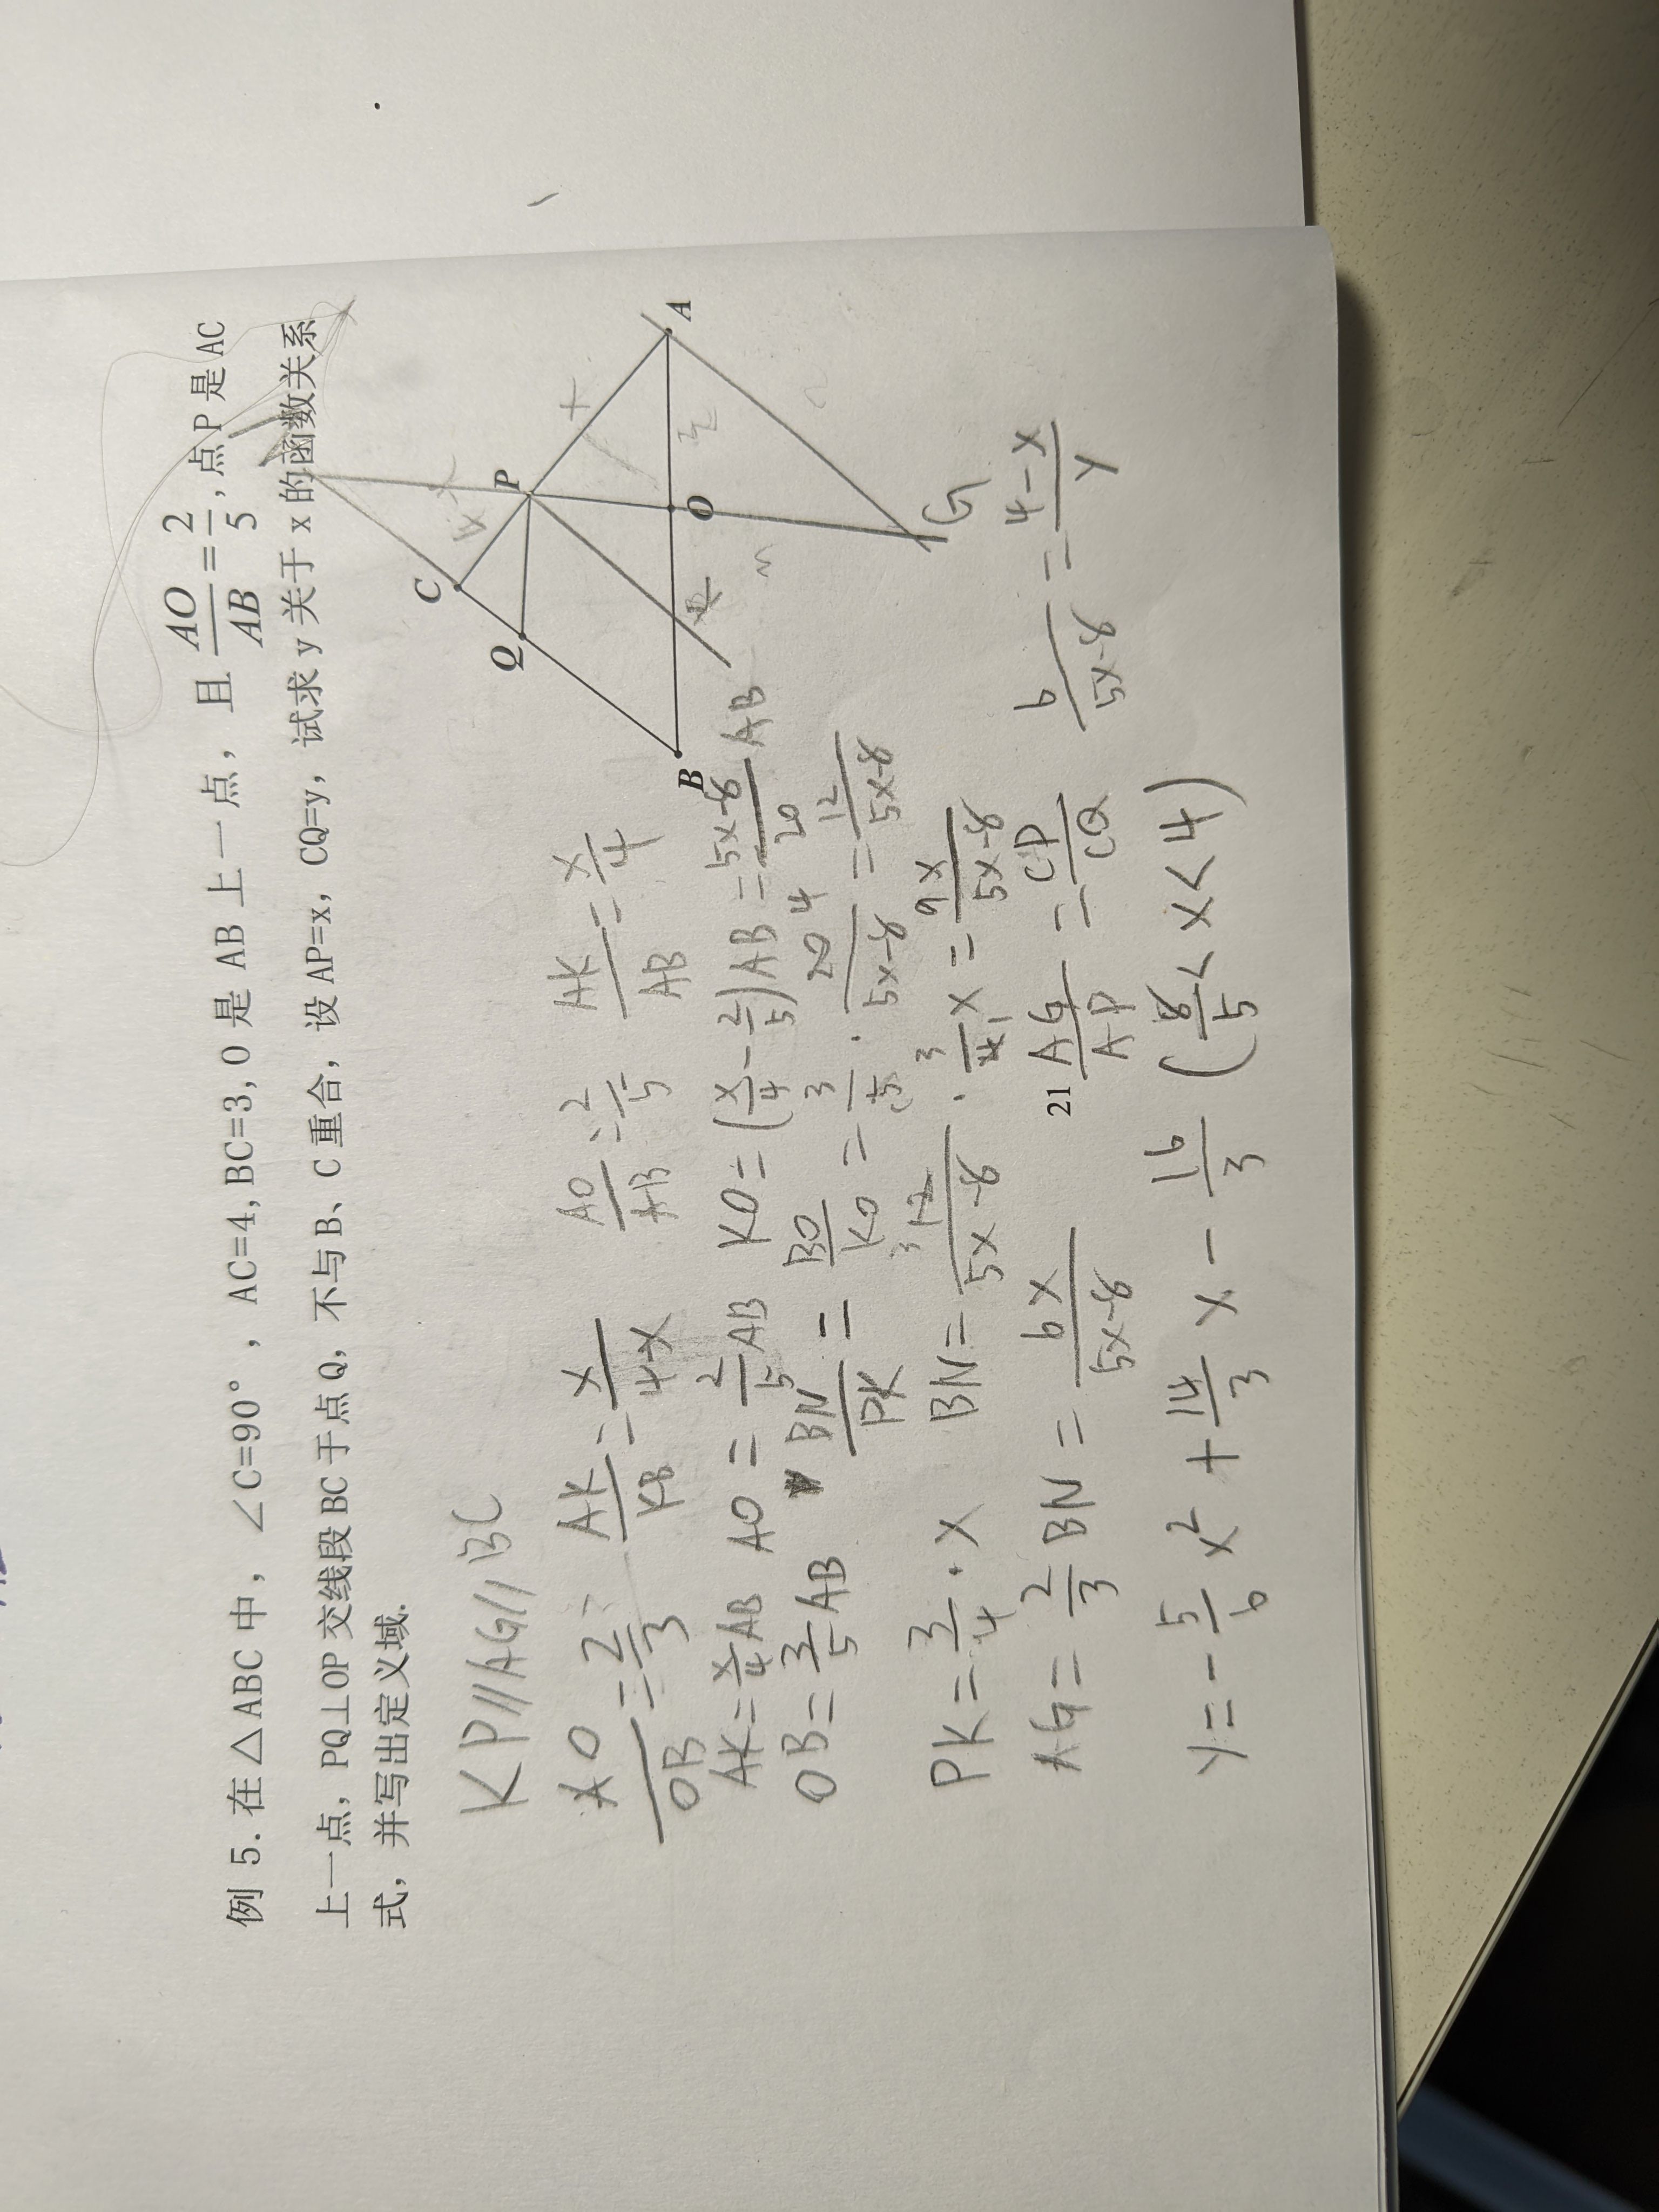 例 5. 在△ABC 中，∠C=90°，AC=4, BC=3, O 是 AB 上一点，且 AO/AB = 2/5, 点 P 是 AC
上一点, PQ⊥OP 交线段 BC 于点 Q, 不与 B、C 重合, 设 AP=x, CQ=y, 试求 y 关于 x 的函数关系
式, 并写出定义域.
C
P
Q
O
B
A
x
4-x
G
KP//AG//BC
AO/OB = 2/3
AK/KB = x/4-x
AO/AB = 2/5
AK/AB = x/4
AK = x/4 AB
AO = 2/5 AB
KO = (x/4 - 2/5)AB = 5x-8/20 AB
OB = 3/5 AB
BN/PK = BO/KO = 3/5 · 20 4/5x-8 = 12/5x-8
PK = 3/4 · x
BN = 12 3/5x-8 · 3/4 1 x = 9x/5x-8
AG = 2/3 BN = 6x/5x-8
21
AG/AP = CP/CQ
6/5x-8 = 4-x/y
y = - 5/6 x² + 14/3 x - 16/3 (8/5 < x < 4)